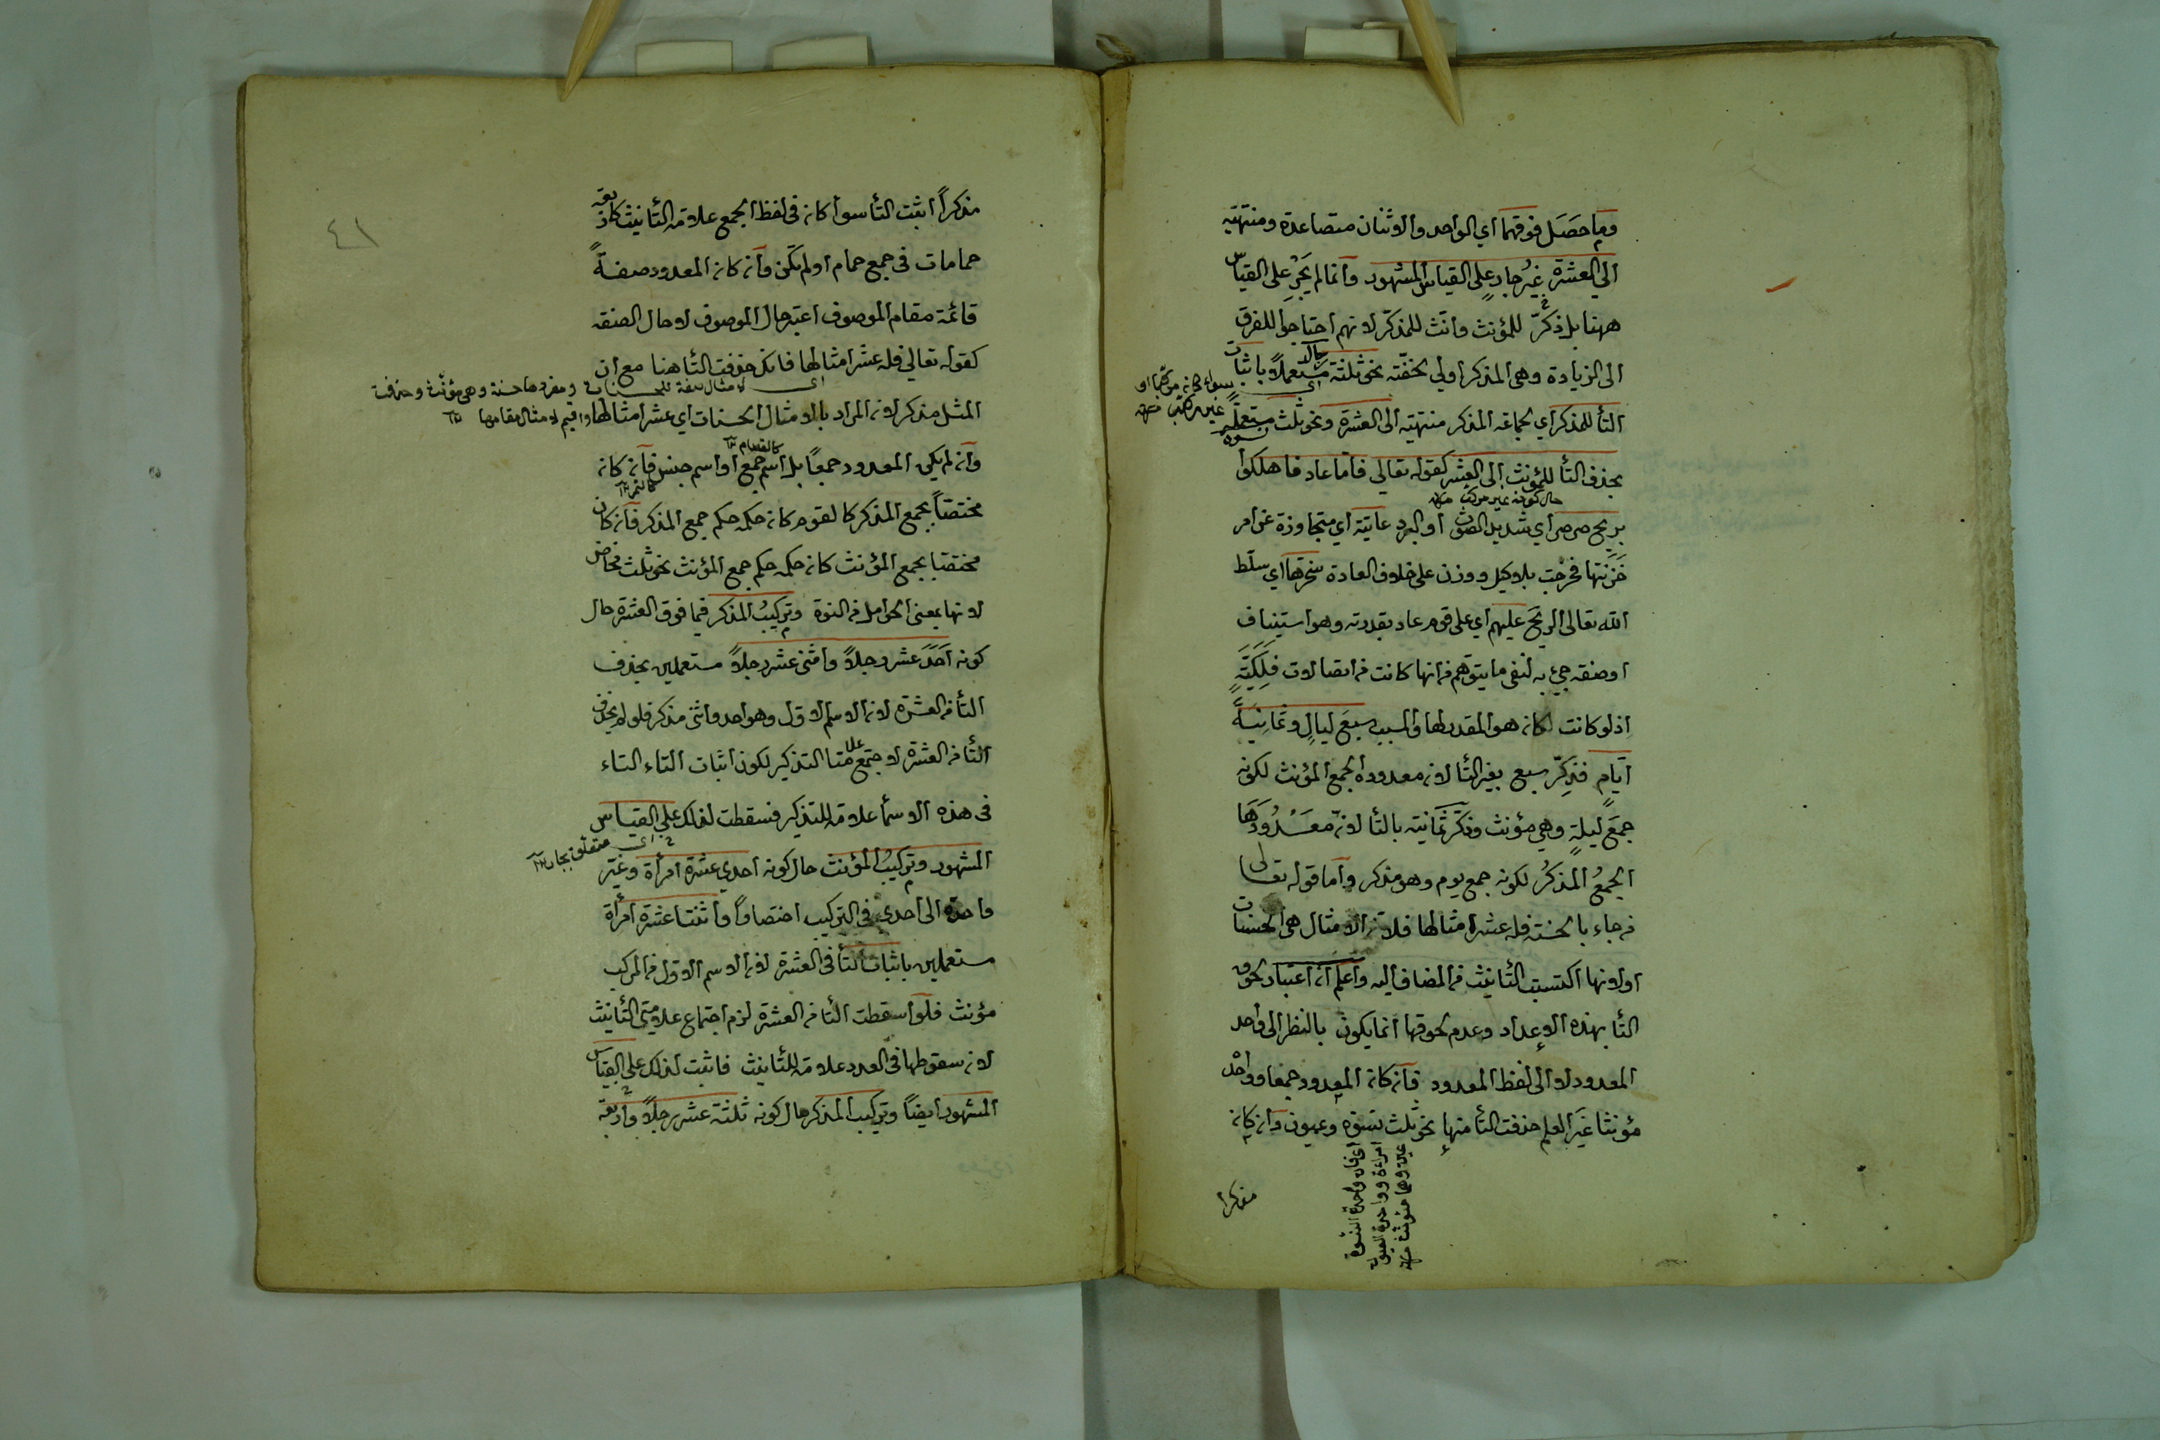 وما حَصَل فوقهما اي الواحد والاثنان متصاعدة ومنتهية
الي العشرة غيرُ جارٍ على القياس المشهور وانما لم يَجْرِ على القياس
ههنا بل ذُكّر للمؤنث وانّث للمذكّر لانهم احتاجوا للفرق
الى الزيادة وهى المذكر اولي لخفّته نحو ثلثة رجال مستعملاً باثبات
التأ للمذكر اي لجماعة المذكر منتهية الى العشرة ونحو ثلث نسوة مستعملة
سواء كانه مركبا او
غير مركب منه
بحذف التأ للمؤنث الى العشر كقوله تعالي فامّا عاد فاهلكوا
حال كونه غير مركب منه
بريح صرصر اي شديد الصوت او البرد عاتية اي متجاوزة عن امر
خَزَنَتها فخرجت بلا كيل ووزن على خلاف العادة سخرها اي سلّط
الله تعالى الريح عليهم اي على قوم عاد بقدرته وهو استيناف
او صفة جيئ به لنفى ما يتوهم من انها كانت من اتصالات فلكيّةٍ
اذ لو كانت لكانه هو المقدر لها والسبب سبعَ ليالٍ وثمانيةَ
أيّامٍ فذكّر سبع بغير التأ لانه معدوده الجمع المؤنث لكونه
جمعَ ليلةٍ وهي مؤنث وذكّر ثمانية بالتأ لانّ معدودَها
الجمعُ المذكرُ لكونه جمع يوم وهو مذكر وأما قوله تعالى
من جاء بالحسنة فله عشر امثالها فلانه الامثال هي الحسنات
او لانها اكتسبت التأنيث من المضاف اليه واعلم انه اعتبار لحوق
التأ بهذه الاعداد وعدم لحوقها انما يكون بالنظر الى واحد
المعدود لا الى لفظ المعدود فانه كانه المعدود جمعا وواحده
مؤنثا غيَر العلم حذفت التأ منها نحو ثلث نسوة وعيون وانه كانه
اي فانه واحدة النسوة
امراءة وواحدة العيون
عين وهما مؤنث منه
مذكرا
٤١
مذكراً اثبت التأ سوأ كانه في لفظ الجمع علامة التأنيث كاربعة
حمامات في جمع حمام او لم تكن وانه كانه المعدود صفةً
قائمة مقام الموصوف اعتبر حال الموصوف لا حال الصفة
كقوله تعالي فله عشر امثالها فانك حذفت التأ هنا مع ان
اى الامثال صفة للحسنات ومفردها حسنة وهى مؤنث وحذفت
المثل مذكر لانه المراد بالامثال الحسنات اي عشر امثالها
واقيم الامثال مقامها ١٢
وانه لم يكن المعدود جمعًا بل اسم جمع او اسم جنس فانه كانه
كالتمر ١٢
مختصّاً بجمع المذكر كالقوم كانه حكمه حكم جمع المذكر فانه كان
مختصا بجمع المؤنث كانه حكمه حكم جمع المؤنث نحو ثلث مخاض
لانها بمعنى الحوامل من النوق وتركيبُ المذكر فيما فوق العشرة حال
كونه أحَدَ عشر رجلاً واثنى عشر رجلاً مستعملين بحذف
التأ من العشرة لانه الاسم الاول وهو احد واثنى مذكر فلو لم يحذف
التأ من العشرة لاجتمع علامتا التذكير لكون اثبات التاء التاء
في هذه الاسمأ علامة للتذكير فسقطت لذلك على القياس
اى متعلق بجار ١٢
المشهور وتركيبُ المؤنث حال كونه احدي عشرة امرأة وغيّر
واحدة الى احدي في التركيب اختصارًا واثنتا عشرة امرأة
مستعملين باثبات التأ في العشرة لانه الاسم الاول من المركب
مؤنث فلو أسقطت التأ من العشرة لزم اجتماع علامتي التأنيث
لانه سقوطها في العدد علامة للتأنيث فاثبت لذلك على القياس
المشهور ايضاً وتركيب المذكر حال كونه ثلثة عشر رجلاً واربعة